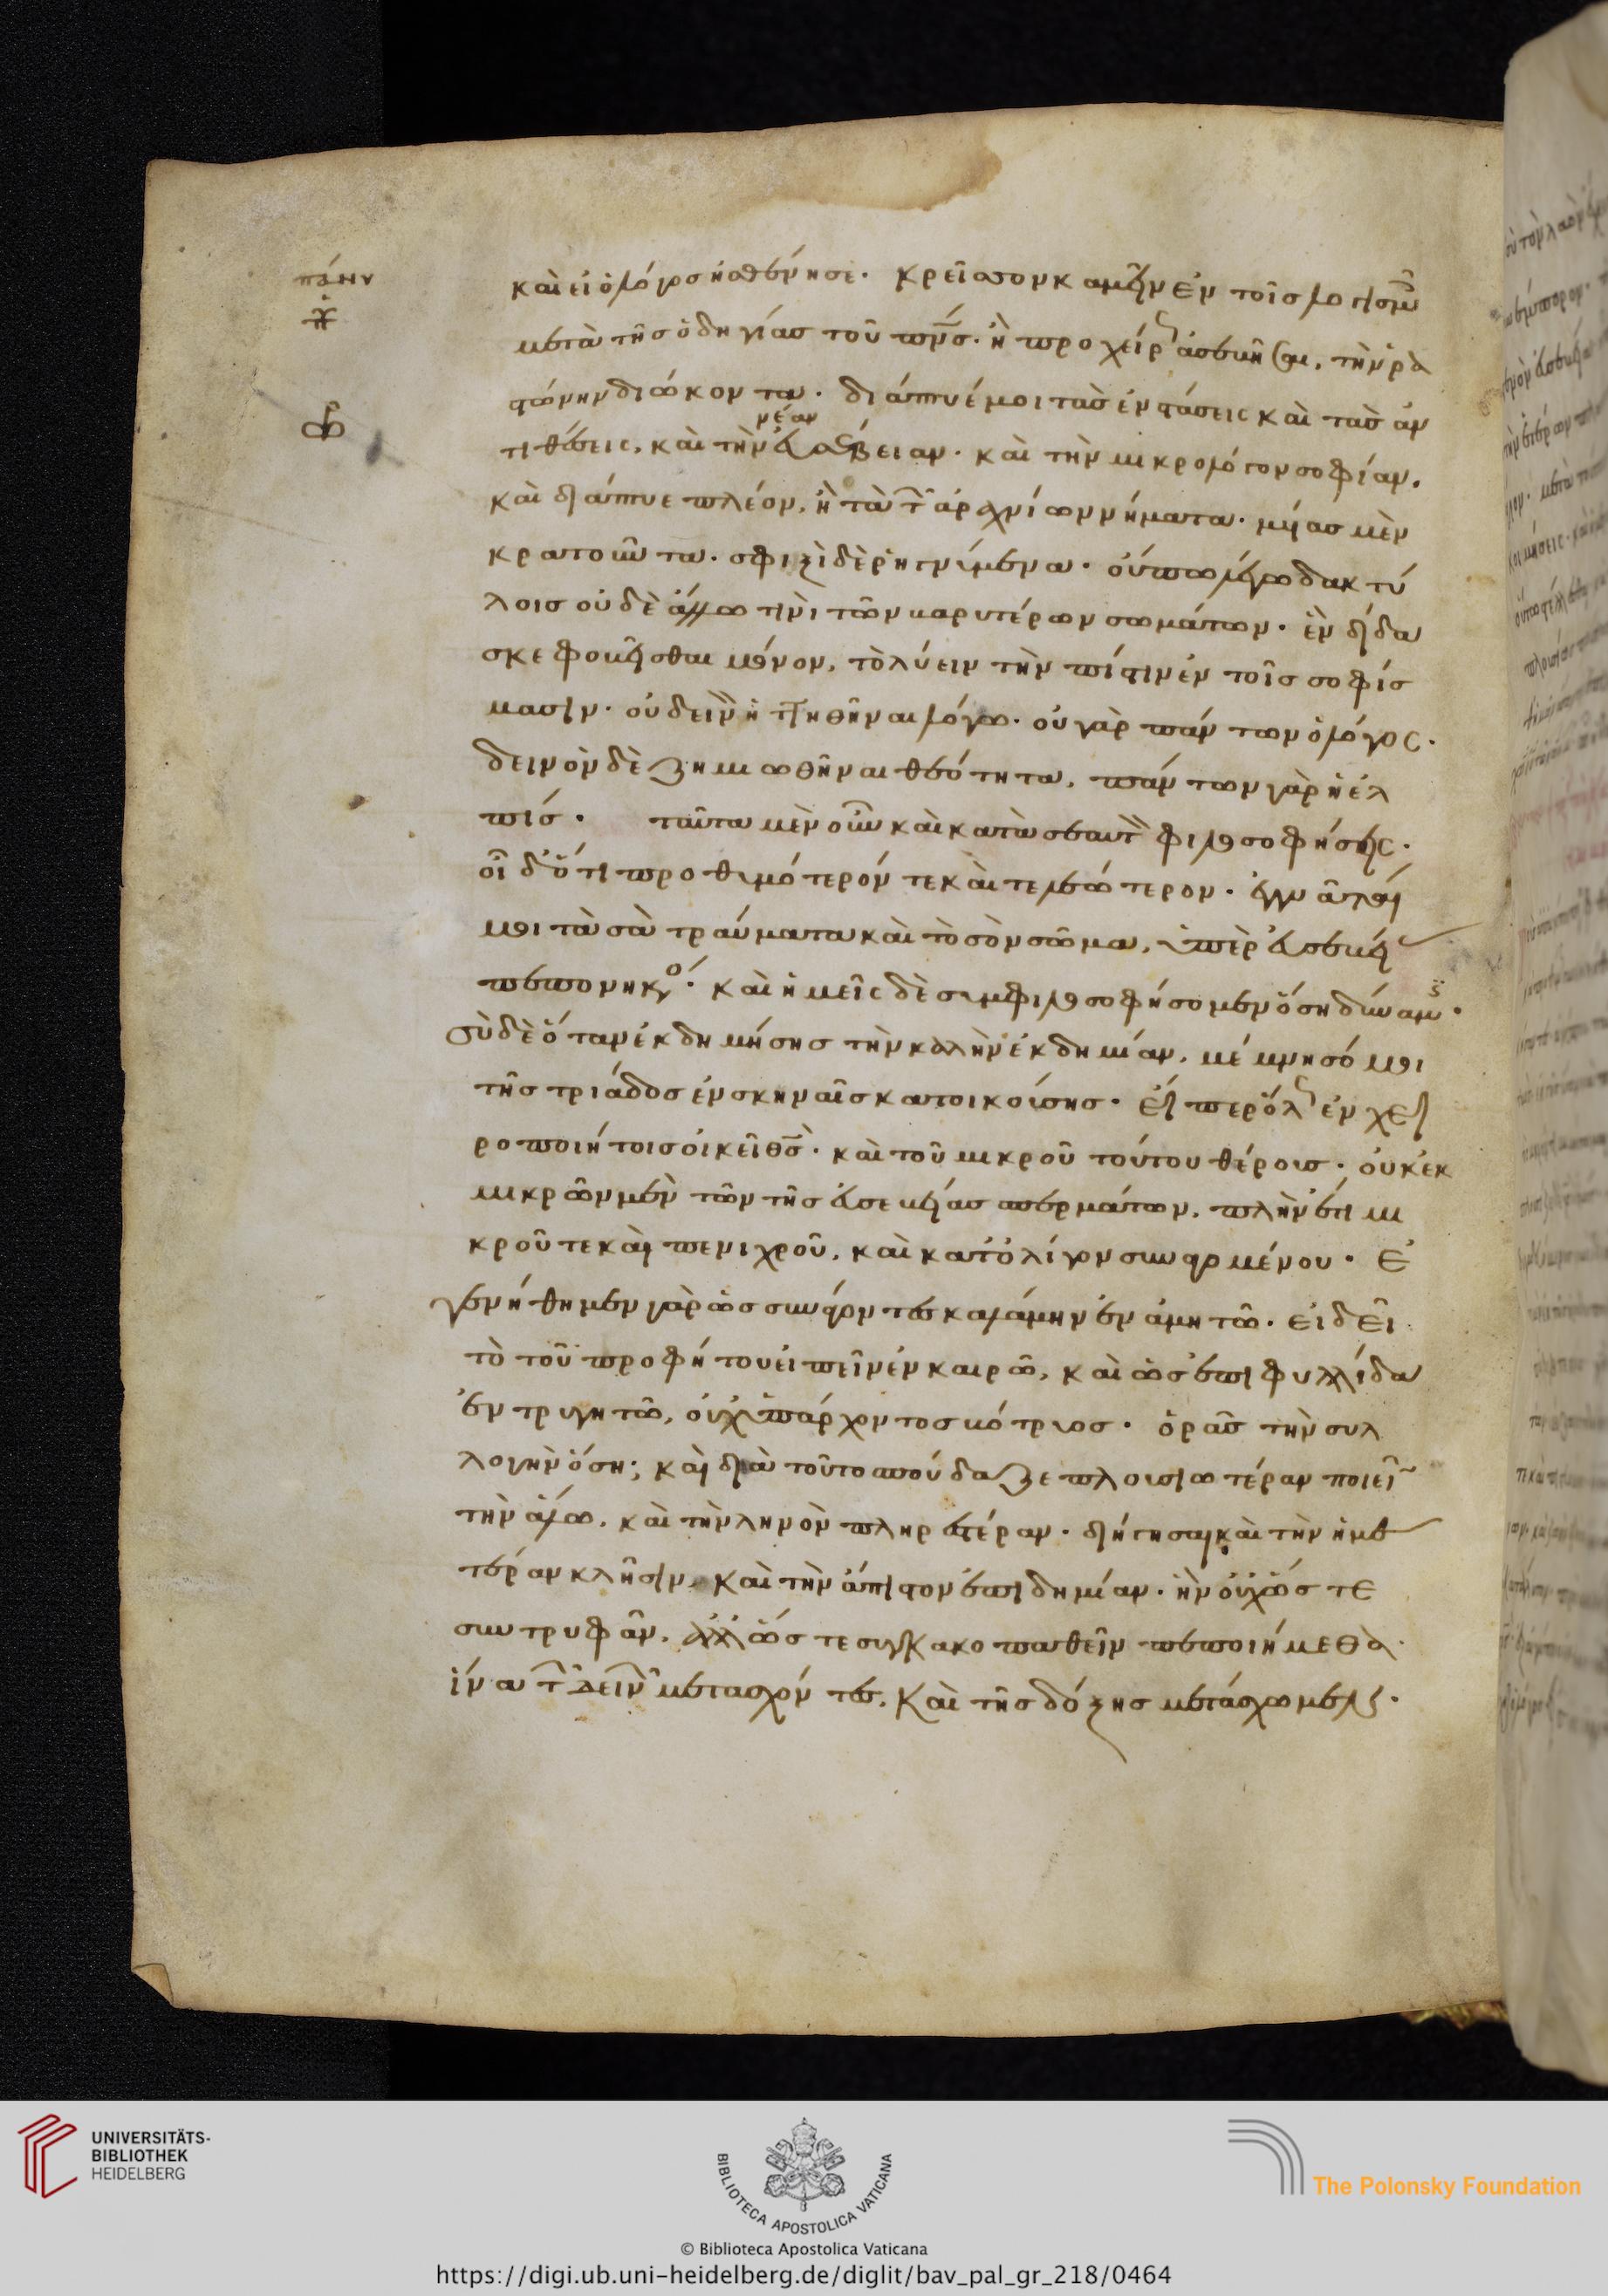 πάνυ
καὶ εἰ ὁ λόγος ἠσθένησε. κρεῖσσον καμεῖν ἐν τοῖς λογισμοῖς
μετὰ τῆς ὁδηγίας τοῦ πνς. ἢ προχείρως ἀσεβῆσαι, τὴν ῥα
στώνην διώκοντα. διάπτυέ μοι τὰς ἐνστάσεις καὶ τὰς ἀν
νέαν
τιθέσεις, καὶ τὴν εὐσέβειαν. καὶ τὴν μικρολόγον σοφίαν.
καὶ διάπτυε πλέον, ἢ τὰ τῶν ἀραχνίων νήματα. μυίας μὲν
κρατοῦντα. σφιξὶ δὲ ῥηγνύμενα. οὔπω λέγω δακτύ
λοις οὐδὲ ἄλλω τινὶ τῶν βαρυτέρων σωμάτων. ἓν δίδα
σκε φοβεῖσθαι μόνον, τὸ λύειν τὴν πίστιν ἐν τοῖς σοφίς
μασιν. οὐ δεινὸν ἡττηθῆναι λόγω. οὐ γὰρ πάντων ὁ λόγος.
δεινὸν δὲ ζημιωθῆναι θεότητα, πάντων γὰρ ἡ ἐλ
πίς. ταῦτα μὲν οὖν καὶ κατὰ σεαυτὸν φιλοσοφήσεις.
οἶδ' ὅτι προθυμότερόν τε καὶ τελεώτερον. ἐγγυᾶταί
μοι τὰ σὰ τραύματα καὶ τὸ σὸν σῶμα, ὑπὲρ εὐσεβεί
πεπονηκός. καὶ ἡμεῖς δὲ συμφιλοσοφήσομεν ὅση δύναμις.
σὺ δὲ ὅταν ἐκδημήσης τὴν καλὴν ἐκδημίαν, μέμνησό μοι
τῆς τριάδος ἐν σκηναῖς κατοικούσης. εἴπερ ὅλως ἐν χει
ροποιήτοις οἰκεῖ θς. καὶ τοῦ μικροῦ τούτου θέρους. οὐκ ἐκ
μικρῶν μὲν τῶν τῆς εὐσεβείας σπερμάτων, πλὴν ἔτι μι
κροῦ τε καὶ πενιχροῦ, καὶ κατ' ὀλίγον συναγομένου. ἐ
γενήθημεν γὰρ ὡς συνάγοντες καλάμην ἐν ἀμητῶ. εἰ δεῖ
τὸ τοῦ προφήτου εἰπεῖν ἐν καιρῶ, καὶ ὡς ἐπιφυλλίδα
ἐν τρυγητῶ, οὐχ ὑπάρχοντος βότρυος. ὁρᾶς τὴν συλ
λογὴν ὅση; καὶ διὰ τοῦτο σπούδαζε πλουσιωτέραν ποιεῖν
τὴν ἅλω, καὶ τὴν ληνὸν πληρεστέραν. διήγησαι καὶ τὴν ἡμε
τέραν κλῆσιν, καὶ τὴν ἄπιστον ἐπιδημίαν. ἣν οὐχ ὥστε
συντρυφᾶν, ἀλλ' ὥστε συγκακοπαθεῖν πεποιήμεθα.
ἵνα τῶν δεινῶν μετασχόντες, καὶ τῆς δόξης μετάσχωμεν.
UNIVERSITÄTS-
BIBLIOTHEK
HEIDELBERG
BIBLIOTECA APOSTOLICA VATICANA
The Polonsky Foundation
© Biblioteca Apostolica Vaticana
https://digi.ub.uni-heidelberg.de/diglit/bav_pal_gr_218/0464